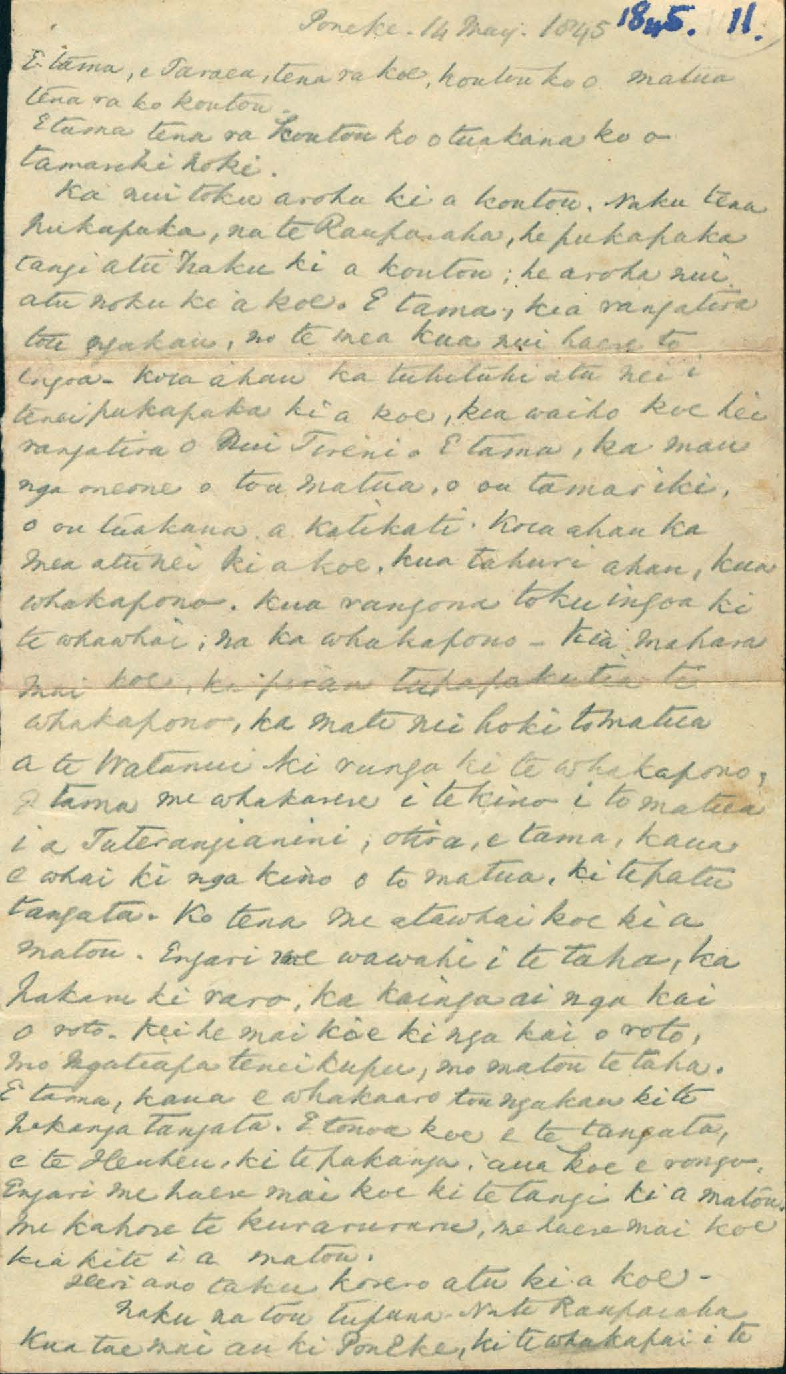 Poneke. 14 May. 1845 1845. 11.
E tama, e Taraea, tena ra koe, koutou ko o matua
tena ra ko koutou.
E tama tena ra koutou ko o tuakana ko o
tamariki hoki.
Ka nui toku aroha ki a koutou. Naku tena
pukapuka, na te Rauparaha, he pukapuka
tangi atu naku ki a koutou; he aroha nui
atu noku ki a koe. E tama, kia rangatira
tou ngakau, no te mea kua nui haere to
ingoa - Koia ahau ka tuhituhi atu nei i
tenei pukapuka ki a koe, kia waiho koe hei
rangatira o Nui Tireni. E tama, ka mau
nga oneone o tou matua, o ou tamariki,
o ou tuakana a Katikati. Koia ahau ka
mea atu nei ki a koe, kua tahuri ahau, kua
whakapono. Kua rangona toku ingoa ki
te whawhai, na ka whakapono - Kia mahara
mai koe, tupapakutia te
whakapono, ka mate nei hoki to matua
a te Watanui ki runga ki te whakapono,
E tama me whakarere i te kino i to matua
i a Tuterangianini; otira, e tama, kaua
e whai ki nga kino o to matua, ki te patu
tangata. Ko tena me atawhai koe ki a
matou. Engari me wawahi i te taha, ka
pakaru ki raro, ka kainga ai nga kai
o roto. Kei he mai koe ki nga kai o roto,
mo Ngatiapa tenei kupu, mo matou te taha.
E tama, kaua e whakaaro tou ngakau ki te
pakanga tangata. E tonoa koe e te tangata,
e te Heuheu, ki te pakanga, aua koe e rongo.
Engari me haere mai koe ki te tangi ki a matou.
me kahore te kuraruraru, me haere mai koe
kia kite i a matou.
Heoi ano taku korero atu ki a koe -
Naku na tou tupuna Na te Rauparaha
Kua tae mai au ki Poneke, ki te whakapai i te